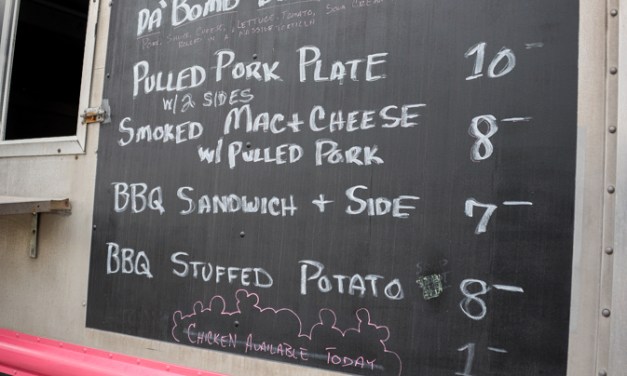 DA' BOMB
PORK, CHEESE, LETTUCE, TOMATO, SOUR CREAM
ROLLED IN A TORTILLA
PULLED PORK PLATE 10-
W/ 2 SIDES
SMOKED MAC + CHEESE 8-
W/ PULLED PORK
BBQ SANDWICH + SIDE 7-
BBQ STUFFED POTATO 8-
CHICKEN AVAILABLE TODAY 1-